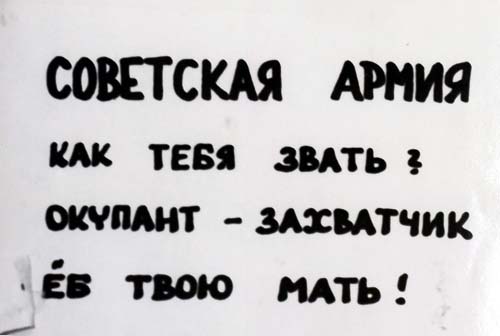 СОВЕТСКАЯ АРМИЯ
КАК ТЕБЯ ЗВАТЬ?
ОКУПАНТ - ЗАХВАТЧИК
ЁБ ТВОЮ МАТЬ!